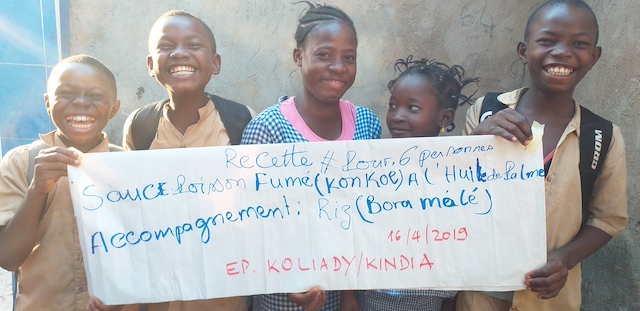 Recette # Pour 6 personnes
Sauce Poisson Fumé (KonKoe) A l'Huile de Palme
Accompagnement: Riz (Bora mélé)
16/4/2019
EP. KOLIADY/KINDIA
CROW